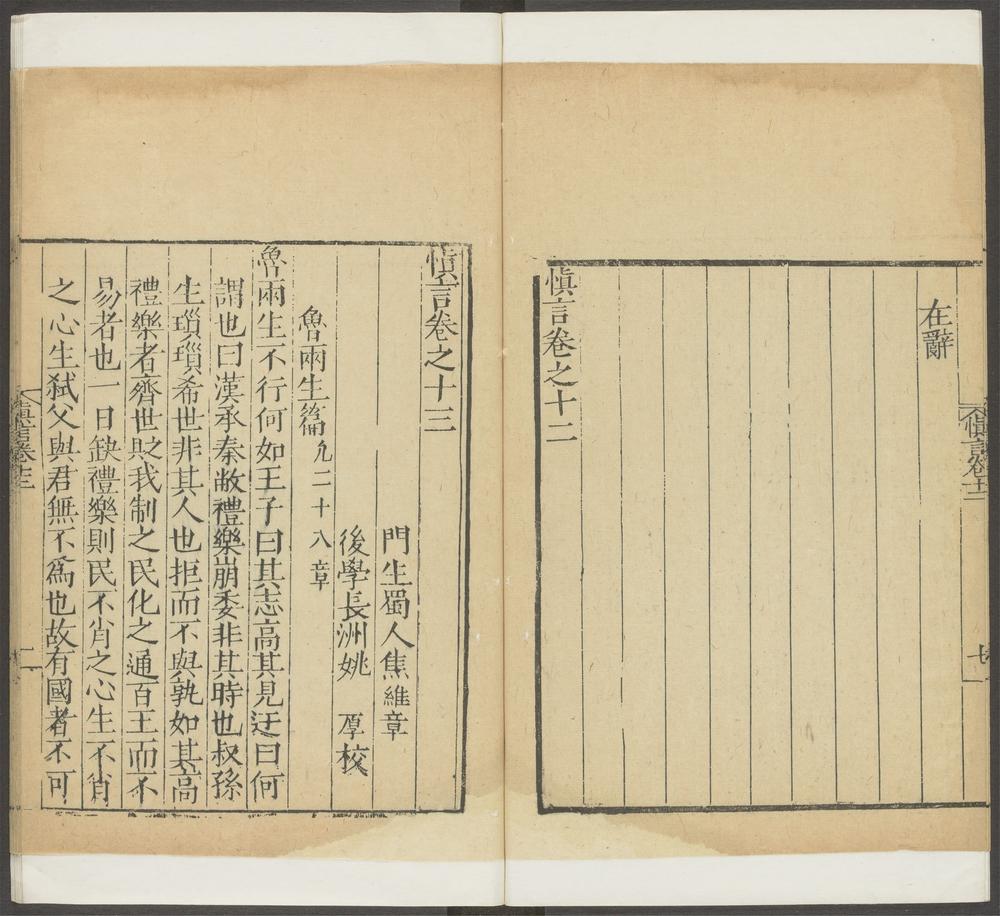 慎言卷十二
七
在辭
慎言卷之十二
慎言卷之十三
門生蜀人焦維章
後學長洲姚 厚校
魯兩生篇凡二十八章
魯兩生不行何如王子曰其志高其見迂曰何
謂也曰漢承秦敝禮樂崩委非其時也叔孫
生瑣瑣希世非其人也拒而不與孰如其高
禮樂者齊世貶我制之民化之通百王而不
易者也一日缺禮樂則民不肖之心生不肖
之心生弒父與君無不爲也故有國者不可
慎言卷十三